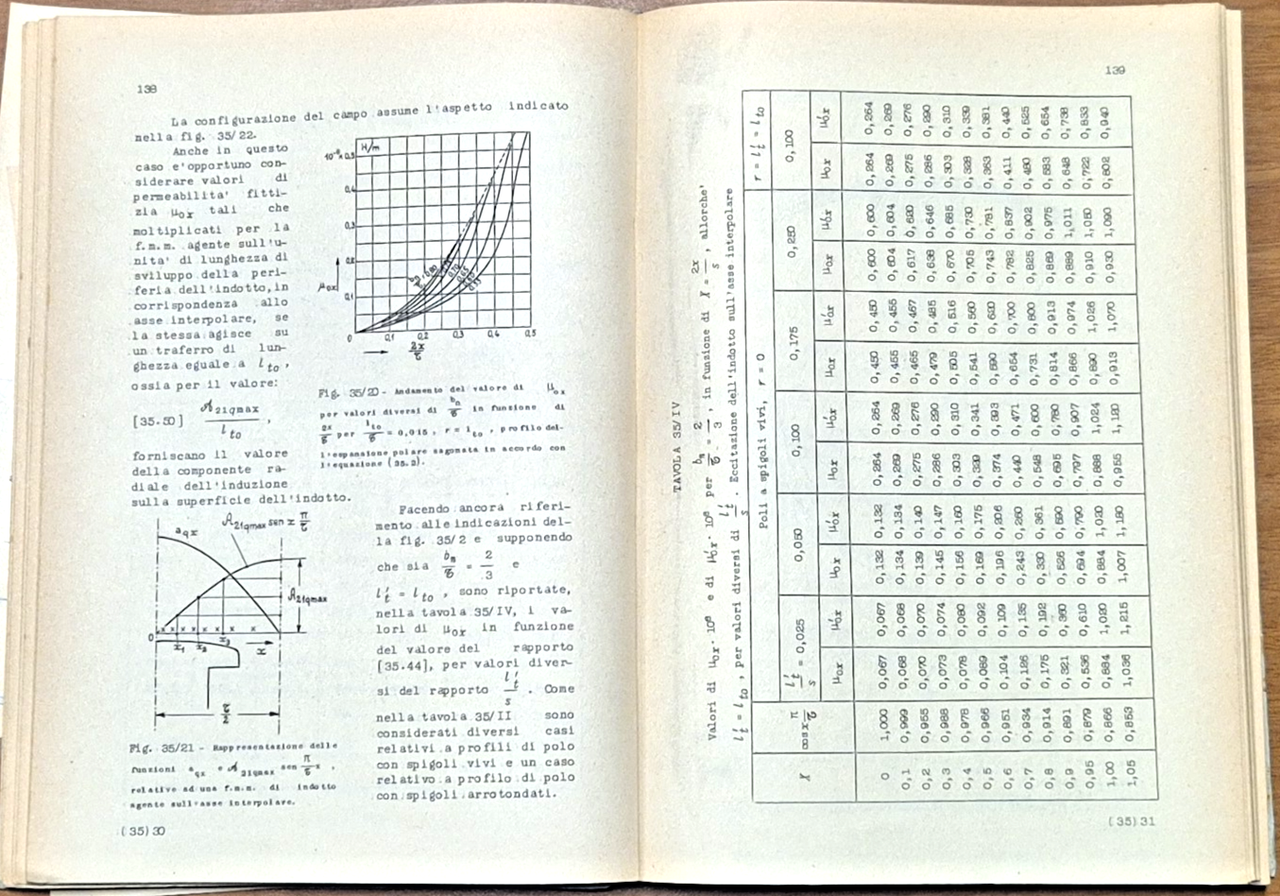 138
La configurazione del campo assume l'aspetto indicato
nella fig. 35/22.
Anche in questo
caso e'opportuno con-
siderare valori di
permeabilita' fitti-
zia μox tali che
moltiplicati per la
f.m.m. agente sull'u-
nita' di lunghezza di
sviluppo della peri-
feria dell'indotto, in
corrispondenza allo
asse interpolare, se
la stessa agisce su
un traferro di lun-
ghezza eguale a lto,
ossia per il valore:
[35.50] A21qmax / lto ,
forniscano il valore
della componente ra-
diale dell'induzione
sulla superficie dell'indotto.
H/m
0,5
0,4
0,3
0,2
0,1
μox
0 0,1 0,2 0,3 0,4 0,5
2x/τ
Fig. 35/20 - Andamento del valore di μox
per valori diversi di bn/τ in funzione di
2x/τ per lto/τ = 0,015 , r = lto , profilo del-
l'espansione polare sagomata in accordo con
l'equazione (35.3).
aqx
A21qmax sen x π/τ
A21qmax
0
x1 x2 x3 x
Fig. 35/21 - Rappresentazione delle
funzioni aqx e A21qmax sen π/τ x ,
relative ad una f.m.m. di indotto
agente sull'asse interpolare.
Facendo ancora riferi-
mento alle indicazioni del-
la fig. 35/2 e supponendo
che sia bn/τ = 2/3 e
l't = lto , sono riportate,
nella tavola 35/IV, i va-
lori di μox in funzione
del valore del rapporto
[35.44], per valori diver-
si del rapporto l't/s . Come
nella tavola 35/II sono
considerati diversi casi
relativi a profili di polo
con spigoli vivi e un caso
relativo a profilo di polo
con spigoli arrotondati.
(35)30
139
TAVOLA 35/IV
Valori di μox · 10⁶ e di μ'ox · 10⁶ per bn/τ = 2/3 , in funzione di X = 2x/s , allorche'
l't = lto , per valori diversi di l't/s . Eccitazione dell'indotto sull'asse interpolare
Poli a spigoli vivi, r = 0 r = l't = lto
X cos x π/τ l't/s = 0,025 0,050 0,100 0,175 0,250 0,100
μox μ'ox μox μ'ox μox μ'ox μox μ'ox μox μ'ox μox μ'ox
0 1,000 0,067 0,067 0,132 0,132 0,264 0,264 0,450 0,450 0,600 0,600 0,264 0,264
0,1 0,999 0,068 0,068 0,134 0,134 0,269 0,269 0,455 0,455 0,604 0,604 0,269 0,269
0,2 0,955 0,070 0,070 0,139 0,140 0,275 0,276 0,465 0,467 0,617 0,620 0,275 0,276
0,3 0,988 0,073 0,074 0,145 0,147 0,286 0,290 0,479 0,485 0,638 0,646 0,285 0,290
0,4 0,978 0,078 0,080 0,156 0,160 0,303 0,310 0,505 0,516 0,670 0,685 0,303 0,310
0,5 0,966 0,089 0,092 0,169 0,175 0,339 0,341 0,541 0,560 0,705 0,730 0,328 0,339
0,6 0,951 0,104 0,109 0,196 0,206 0,374 0,393 0,590 0,620 0,743 0,781 0,363 0,381
0,7 0,934 0,126 0,135 0,243 0,260 0,440 0,471 0,654 0,700 0,782 0,837 0,411 0,440
0,8 0,914 0,175 0,192 0,330 0,361 0,548 0,600 0,731 0,800 0,825 0,902 0,480 0,525
0,9 0,891 0,321 0,360 0,526 0,590 0,695 0,780 0,814 0,913 0,869 0,975 0,583 0,654
0,95 0,879 0,536 0,610 0,694 0,790 0,797 0,907 0,866 0,974 0,889 1,011 0,648 0,738
1,00 0,866 0,884 1,020 0,884 1,020 0,888 1,024 0,890 1,026 0,910 1,050 0,722 0,833
1,05 0,853 1,036 1,215 1,007 1,180 0,955 1,120 0,913 1,070 0,930 1,090 0,802 0,940
(35)31